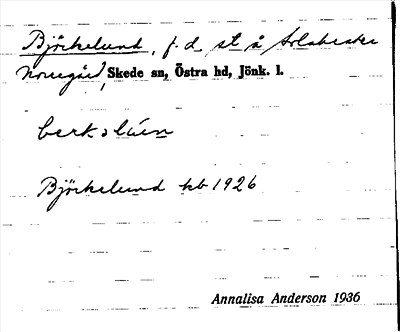 Björkelund, f. d. st å Arlabecke
Norregård, Skede sn, Östra hd, Jönk. l.
Björkelund kb 1926
Annalisa Anderson 1936